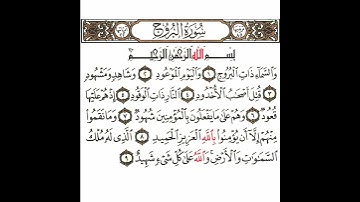 سُورَةُ البُرُوجِ
بِسْمِ اللَّهِ الرَّحْمَٰنِ الرَّحِيمِ
وَالسَّمَاءِ ذَاتِ الْبُرُوجِ ١ وَالْيَوْمِ الْمَوْعُودِ ٢ وَشَاهِدٍ وَمَشْهُودٍ
٣ قُتِلَ أَصْحَابُ الْأُخْدُودِ ٤ النَّارِ ذَاتِ الْوَقُودِ ٥ إِذْ هُمْ عَلَيْهَا
قُعُودٌ ٦ وَهُمْ عَلَىٰ مَا يَفْعَلُونَ بِالْمُؤْمِنِينَ شُهُودٌ ٧ وَمَا نَقَمُوا
مِنْهُمْ إِلَّا أَن يُؤْمِنُوا بِاللَّهِ الْعَزِيزِ الْحَمِيدِ ٨ الَّذِي لَهُ مُلْكُ
السَّمَاوَاتِ وَالْأَرْضِ وَاللَّهُ عَلَىٰ كُلِّ شَيْءٍ شَهِيدٌ ٩